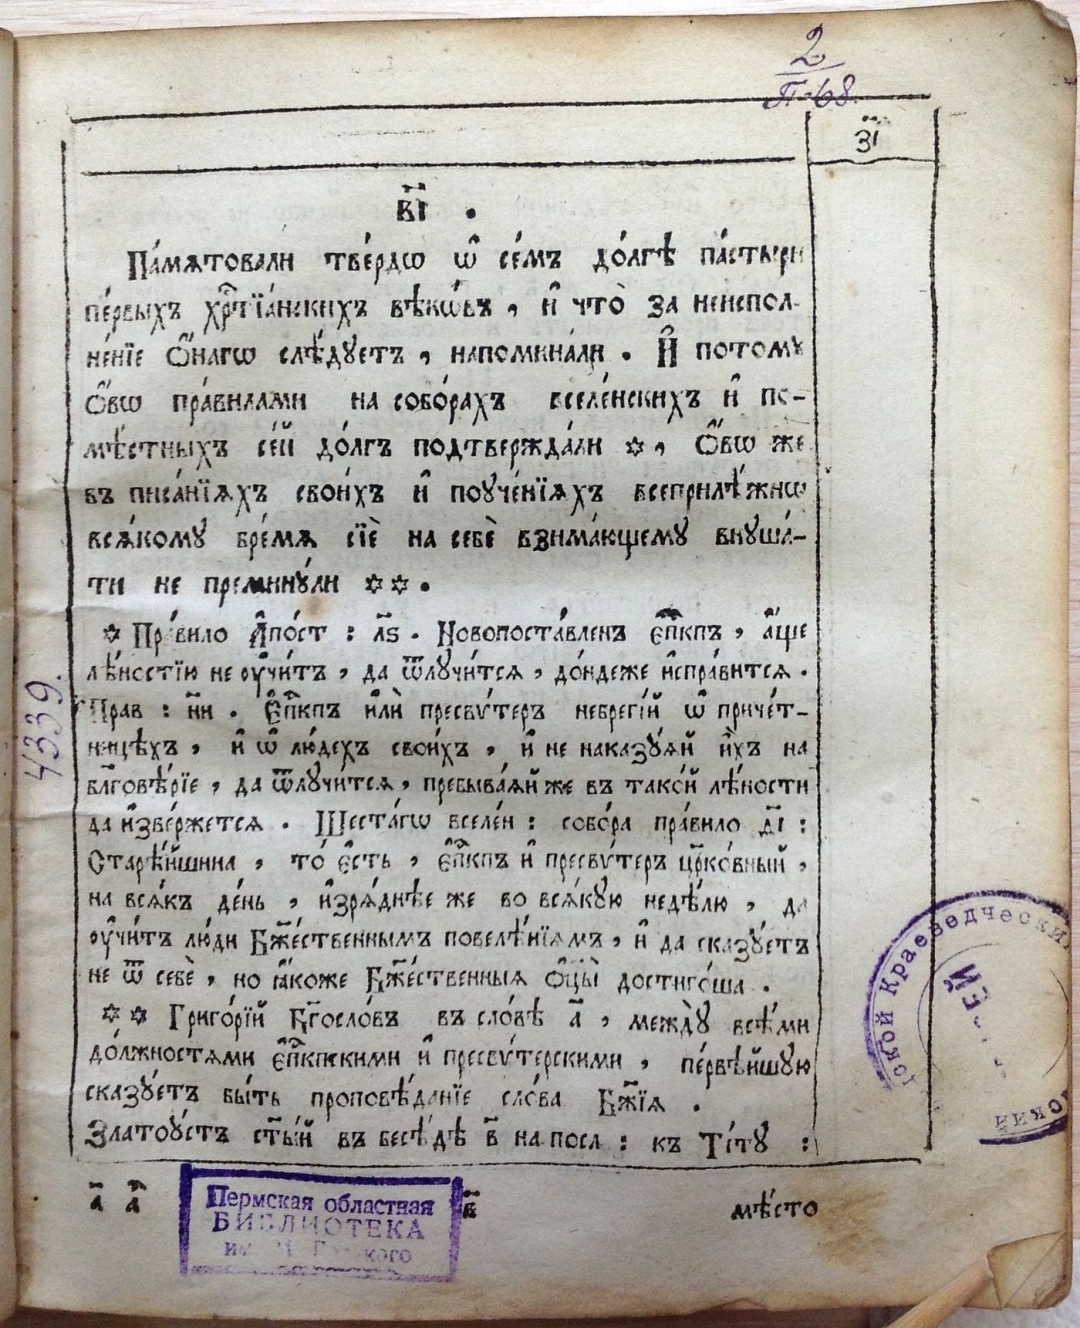 2
П-68
з҃і
в҃і .
Па́мѧтовали тве́рдѡ ѡ҆ се́мъ до́лгѣ па́стыри
пе́рвыхъ хрⷭ҇тїа́нскихъ вѣкѡ́въ , и҆ что̀ за неиспол-
не́нїе ѻ҆́нагѡ слѣ́дуетъ , напомина́ли . И҆ потомꙋ
ѻ҆́вѡ пра́вилами на собо́рахъ вселе́нскихъ и҆ по-
мѣ́стныхъ се́й до́лгъ подтвержда́ли * , ѻ҆́вѡ же
въ писа́нїѧхъ свои́хъ и҆ поꙋче́нїѧхъ всеприлѣ́жнѡ
всѧ́комꙋ бре́мѧ сїѐ на себѐ взима́ющемꙋ внꙋша́-
ти не преминꙋ́ли * * .
* Пра́вило А҆по́ст : л҃ѕ . Новопоста́вленъ є҆пⷭ҇кпъ , а҆́ще
лѣ́ностїю не ᲂу҆чи́тъ , да ѿлꙋчи́тсѧ , до́ндеже и҆спра́витсѧ .
Прав : н҃и . Є҆пⷭ҇кпъ и҆лѝ пресвѵ́теръ небреги́й ѡ҆ приче́т-
ницѣхъ , и҆ ѡ҆ лю́дехъ свои́хъ , и҆ не наказꙋ́ѧй и҆́хъ на
бл҃говѣ́рїе , да ѿлꙋчи́тсѧ , пребыва́ѧй же въ тако́й лѣ́ности
да и҆зве́ржетсѧ . Шеста́гѡ вселе́н : собо́ра пра́вило д҃і :
Старѣ́йшина , то́ є҆сть , є҆пⷭ҇кпъ и҆ пресвѵ́теръ цр҃ко́вный ,
на всѧ́къ де́нь , и҆зрѧ́днѣе же во всѧ́кꙋю недѣ́лю , да
ᲂу҆чи́тъ лю́ди Бж҃е́ственнымъ повелѣ́нїѧмъ , и҆ да сказꙋ́етъ
не ѿ себѐ , но ꙗ҆́коже Бж҃е́ственныѧ ѻ҆ц҃ы̀ дости́гоша .
* * Григо́рїй Бг҃осло́въ въ сло́вѣ а҃ , междꙋ̀ всѣ́ми
до́лжностѧми є҆пⷭ҇кпскими и҆ пресвѵ́терскими , пе́рвѣйшꙋю
сказꙋ́етъ бы́ть проповѣ́данїе сло́ва Бж҃їѧ .
Златоꙋ́стъ ст҃ы́й въ бесѣ́дѣ в҃ на посл : къ Ті́тꙋ :
а҃ а҃ в҃ мѣ́сто
4339.
Пермская областная
БИБЛИОТЕКА
им. Горького
Краеведческий
МУЗЕЙ